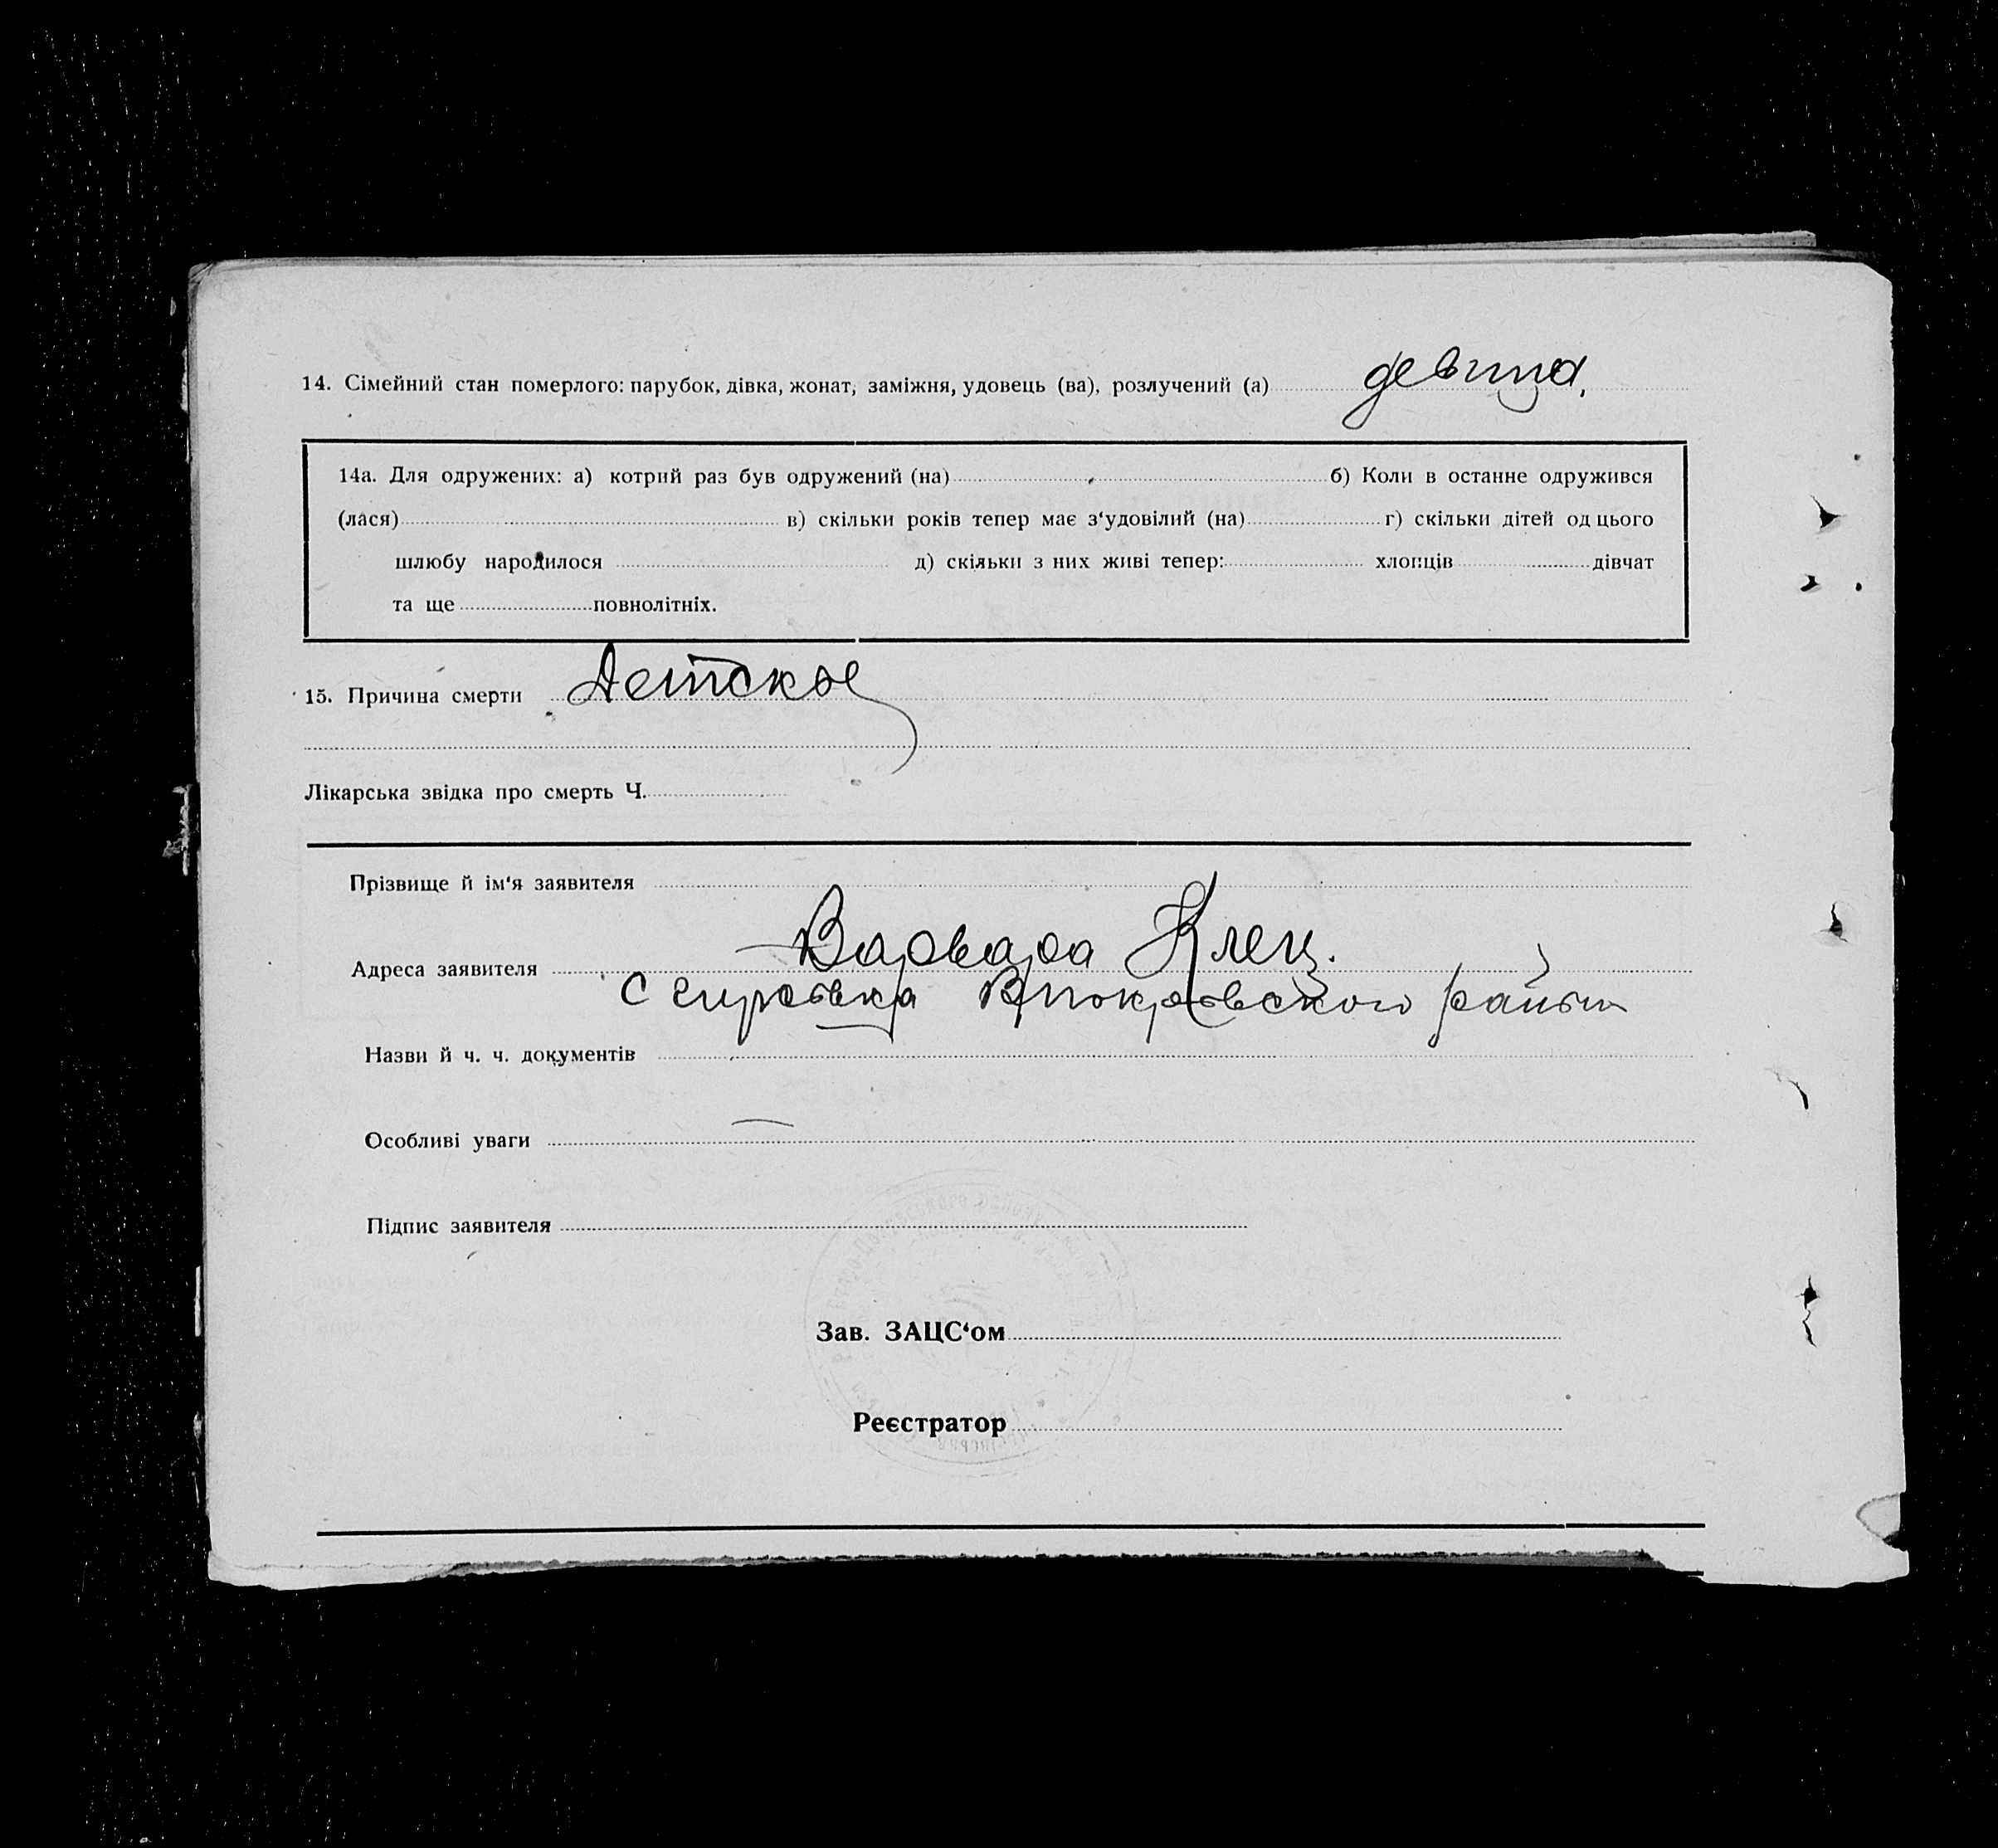 14. Сімейний стан померлого: парубок, дівка, жонат, заміжня, удовець (ва), розлучений (а) девица,
14а. Для одружених: а) котрий раз був одружений (на) б) Коли в останне одружився
(лася) в) скільки років тепер має з‘удовілий (на) г) скільки дітей од цього
шлюбу народилося д) скільки з них живі тепер: хлопців дівчат
та ще повнолітніх.
15. Причина смерти Детское
Лікарська звідка про смерть Ч.
Прізвище й ім‘я заявителя
Варвара Клец.
Адреса заявителя
с района
Назви й ч. ч. документів
Особливі уваги
Підпис заявителя
Зав. ЗАЦС‘ом
Реєстратор